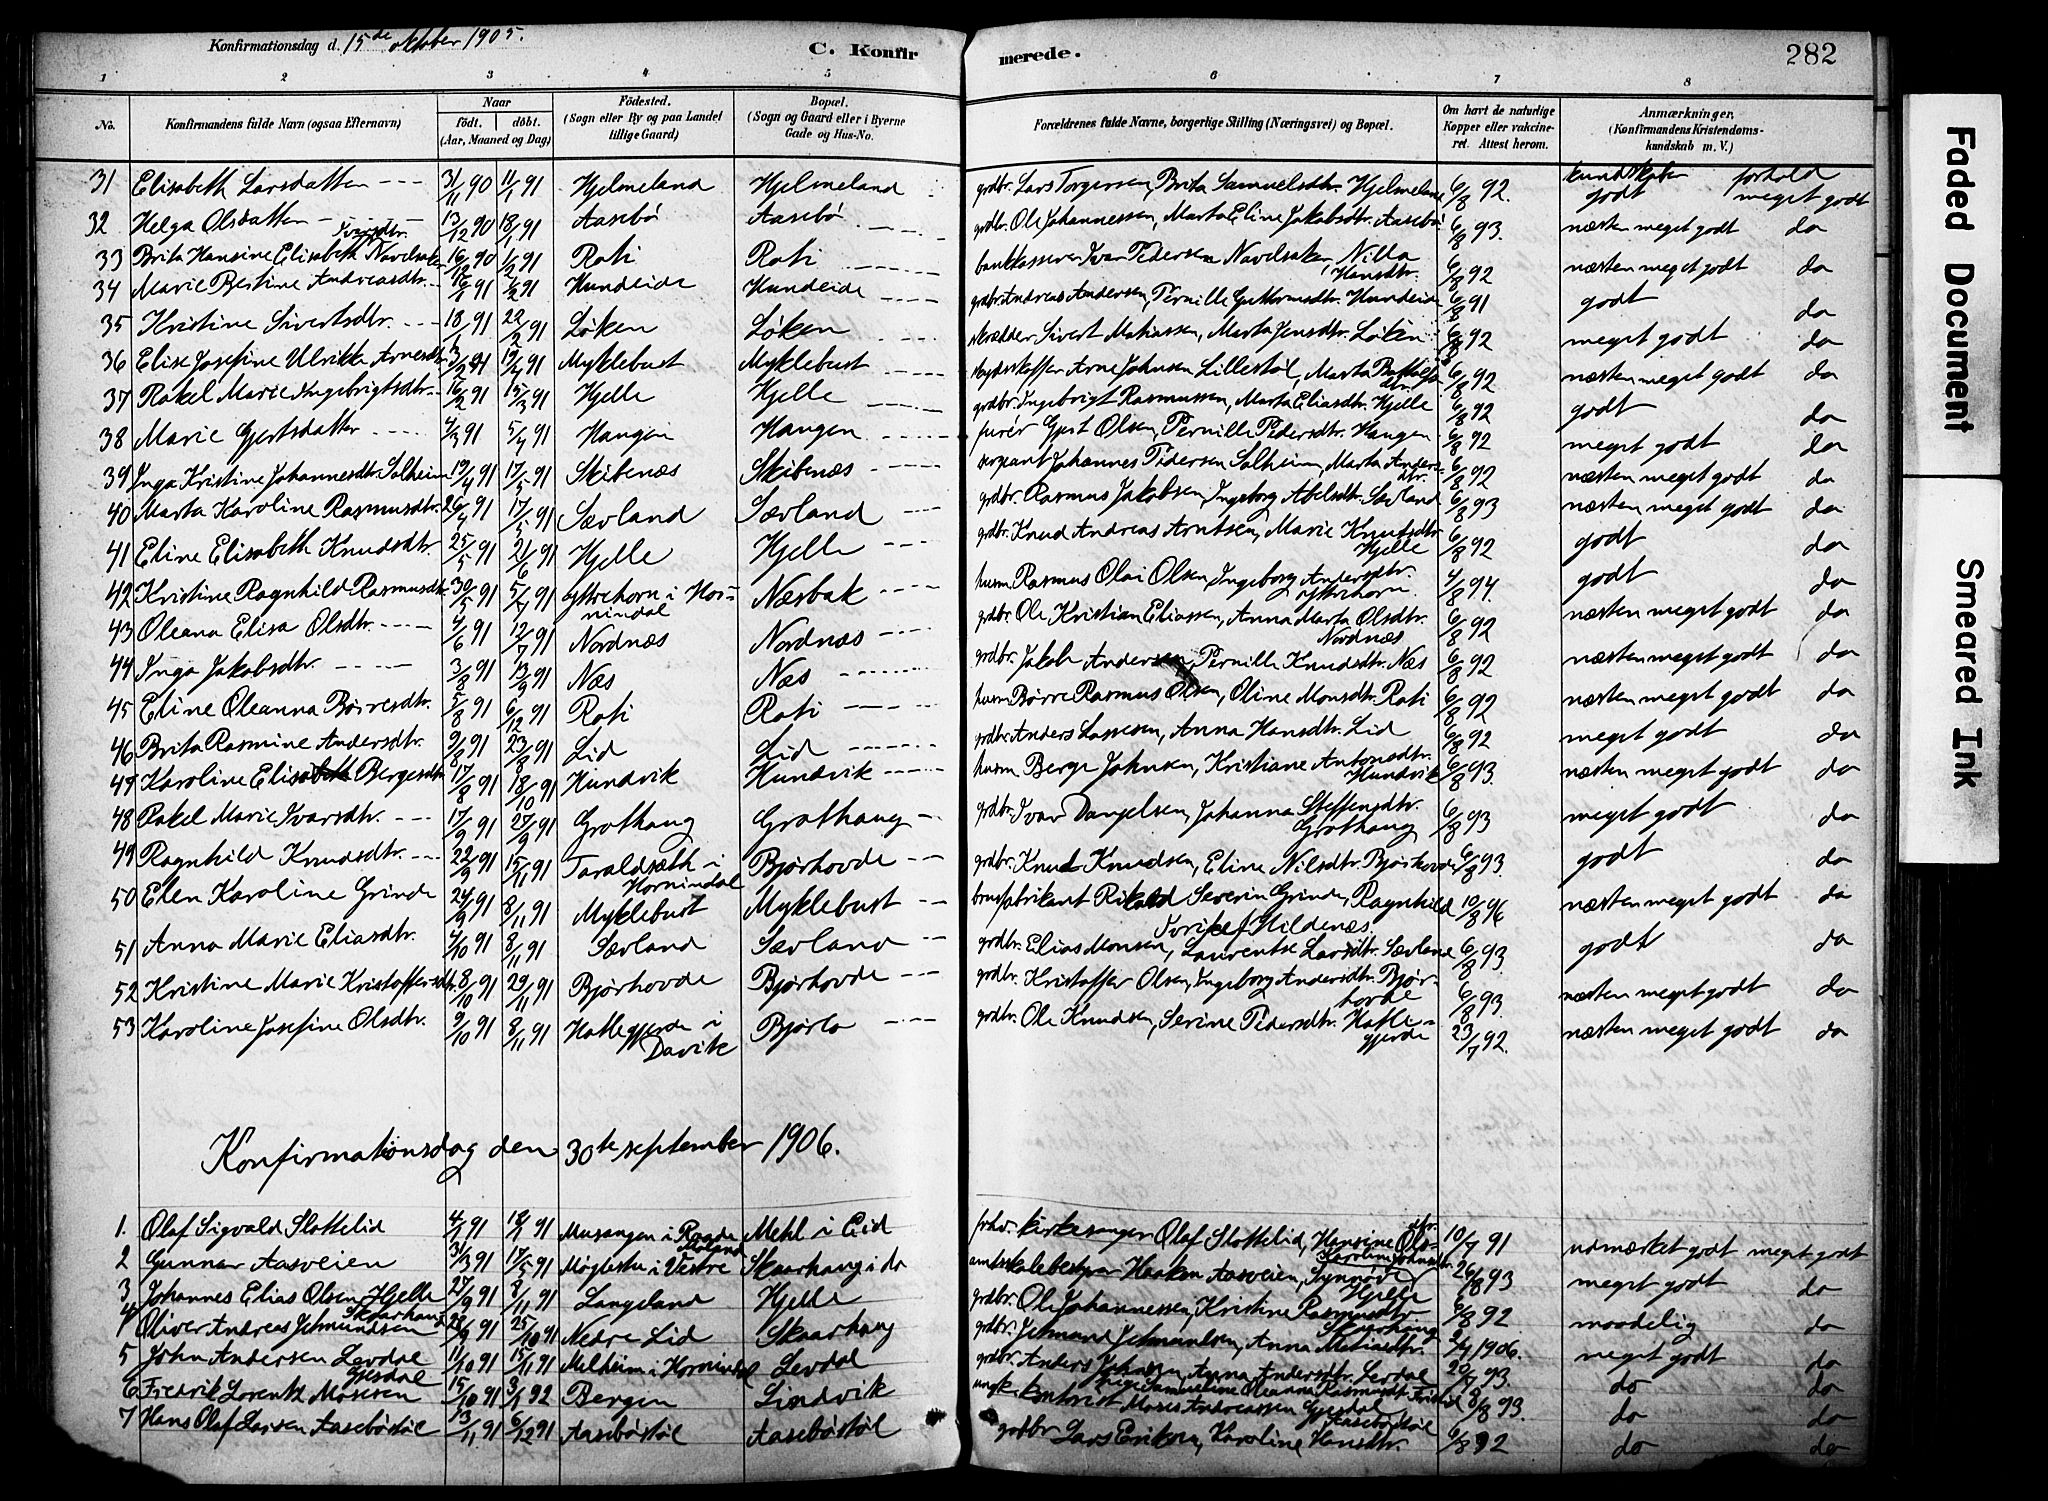 Konfirmationsdag d. 15de oktober 1905.
C. Konfirmerede.
282
1 2 3 4 5 6 7 8
No.
Konfirmandens fulde Navn (ogsaa Efternavn)
Naar
födt. döbt.
(Aar, Maaned og Dag)
Födested.
(Sogn eller By og paa Landet
tillige Gaard)
Bopæl.
(Sogn og Gaard eller i Byerne
Gade og Hus-No.
Forældrenes fulde Navne, borgerlige Stilling (Næringsvei) og Bopæl.
Om havt de naturlige
Kopper eller vakcine-
ret. Attest herom.
Anmærkninger,
(Konfirmandens Kristendoms-
kundskab m. V.)
kundskaber forhold
31 Elisabeth Larsdatter 3/11 90 11/1 91 Hjelmeland Hjelmeland grdbr. Lars Torgersen, Brita Samuelsdtr. Hjelmeland 6/8 92. godt meget godt
32 Helga Olsdatter 13/12 90 18/1 91 Aasebö Aasebö grdbr. Ole Johannessen, Marta Eline Jakobsdtr. Aasebö 6/8 93. næsten meget godt do
33 Brita Hansine Elisabeth Ivarsdtr. Navelsaker 16/12 90 1/2 91 Roti Roti bankkasserer Ivar Pedersen Navelsaker, Nilla Hansdtr. 6/8 92 næsten meget godt do
34 Marie Bertine Andreasdtr. 16/1 91 1/2 91 Hundeide Hundeide grdbr. Andreas Andersen, Pernille Guttormsdtr. Hundeide 6/8 91 godt do
35 Kristine Sivertsdtr. 18/1 91 22/2 91 Löken Löken skrædder Sivert Matiassen, Marta Jensdtr. Löken 6/8 92 meget godt do
36 Elise Josefine Ulrikke Arnesdtr. 3/2 91 19/4 91 Myklebust Myklebust skydsskaffer Arne Johnsen Lillestöl, Marta 6/8 92 næsten meget godt do
37 Rakel Marie Ingebrigtsdtr. 16/2 91 15/3 91 Hjelle Hjelle grdbr. Ingebrigt Rasmussen, Marta Eliasdtr. Hjelle 6/8 92 godt do
38 Marie Gjertsdatter 4/3 91 5/4 91 Haugen Haugen furér Gjert Olsen, Pernille Pedersdtr. Haugen 6/8 92 meget godt do
39 Inga Kristine Johannesdtr. Solheim 19/4 91 17/5 91 Skibenæs Skibenæs sergeant Johannes Pedersen Solheim, Marta Andersdtr. 6/8 92 næsten meget godt do
40 Marta Karoline Rasmusdtr. 26/4 91 17/5 91 Sævland Sævland grdbr. Rasmus Jakobsen, Ingeborg Abelsdtr. Sævland 6/8 93 næsten meget godt do
41 Eline Elisabeth Knudsdtr. 25/5 91 21/6 91 Hjelle Hjelle grdbr. Knud Andreas Arntsen, Marie Knudsdtr. Hjelle 6/8 92 godt do
42 Kristine Ragnhild Rasmusdtr. 30/5 91 5/7 91 yttrehorn i Hornindal Næsbak husm. Rasmus Olai Olsen, Ingeborg Andersdtr. yttrehorn. 4/8 94. godt do
43 Oleana Elisa Olsdtr. 4/6 91 12/7 91 Nordnæs Nordnæs grdbr. Ole Kristian Eliassen, Anna Marta Olsdtr. Nordnæs 6/8 92 næsten meget godt do
44 Inga Jakobsdtr. 3/8 91 13/9 91 Næs Næs grdbr. Jakob Andersen, Pernille Knudsdtr. Næs 6/8 92 næsten meget godt do
45 Eline Oleanna Börresdtr. 5/8 91 6/12 91 Roti Roti husm. Börre Rasmus Olsen, Oline Monsdtr. Roti 6/8 92 næsten meget godt do
46 Brita Rasmine Andersdtr. 9/8 91 23/8 91 Lid Lid grdbr. Anders Lassesen, Anna Hansdtr. Lid 6/8 92 meget godt do
47 Karoline Elisabeth Bergesdtr. 17/8 91 18/10 91 Hundvik Hundvik husm. Berge Johnsen, Kristiane Antonsdtr. Hundvik 6/8 93. næsten meget godt do
48 Rakel Marie Ivarsdtr. 17/9 91 27/9 91 Grothaug Grothaug grdbr. Ivar Danjelsen, Johanna Steffensdtr. Grothaug 6/8 93 meget godt do
49 Ragnhild Knudsdtr. 22/9 91 15/11 91 Taraldsæth i Hornindal Bjørhovde grdbr. Knud Knudsen, Eline Nilsdtr. Bjørhovde 6/8 93. godt do
50 Elen Karoline Grinde 24/9 91 8/11 91 Myklebust Myklebust brusfabrikant Rikard Severin Grinde, Ragnhild Hildenæs. 10/8 96 næsten meget godt do
51 Anna Marie Eliasdtr. 4/10 91 8/11 91 Sævland Sævland grdbr. Elias Monsen, Laurentse Larsdtr. Sævland 6/8 93. godt do
52 Kristine Marie Kristoffersdtr. 8/10 91 29/11 91 Bjørhovde Bjørhovde grdbr. Kristoffer Olsen, Ingeborg Andersdtr. Bjørhovde 6/8 93. næsten meget godt do
53 Karoline Josefine Olsdtr. 9/10 91 8/11 91 Hatlegjerde i Davik Bjørlo grdbr. Ole Knudsen, Serine Pedersdtr. Hatlegjerde 23/7 92. næsten meget godt do
Konfirmationsdag den 30te september 1906.
1. Olaf Sigvald Slottelid 4/1 91 18/1 91 Mehl i Eid fhv. kirkesanger Olaf Slottelid, Hansine Olsdtr. 10/7 91 udmærket godt meget godt
2 Gunnar Aasveien 31/3 91 17/5 91 Skaarhaug i do amtsskolebestyrer Haakon Aasveien, Synnöve 26/8 93 meget godt do
3 Johannes Elias Olsen Hjelle 27/9 91 8/11 91 Langeland Hjelle grdbr. Ole Johannessen, Kristine Rasmusdtr. Hjelle 6/8 92 maadelig do
4 Oliver Andreas Jetmundsen Skaarhaug 28/9 91 25/10 91 Nedre Lid Skaarhaug grdbr. Jetmund Jetmundsen, Anna Matiasdtr. Skaarhaug 2/4 1906. meget godt do
5 John Andersen Levdal 11/10 91 15/11 91 Melheim i Hornindal Levdal grdbr. Anders Johnsen, Anna Andersdtr. Levdal 20/7 93. do do
6 Fredrik Lorentz Mosesen Gjesdal 15/10 91 3/1 92 Bergen Lindvik ungk. kontorist Moses Andreassen Gjesdal, Oleanna Rasmusdt. 8/8 93. do do
7 Hans Olaf Larsen Aasebøstøl 13/11 91 6/12 91 Aasebøstøl Aasebøstøl grdbr Lars Eriksen, Karoline Hansdtr. Aasebøstøl 6/8 92 do do
Faded Document
Smeared Ink